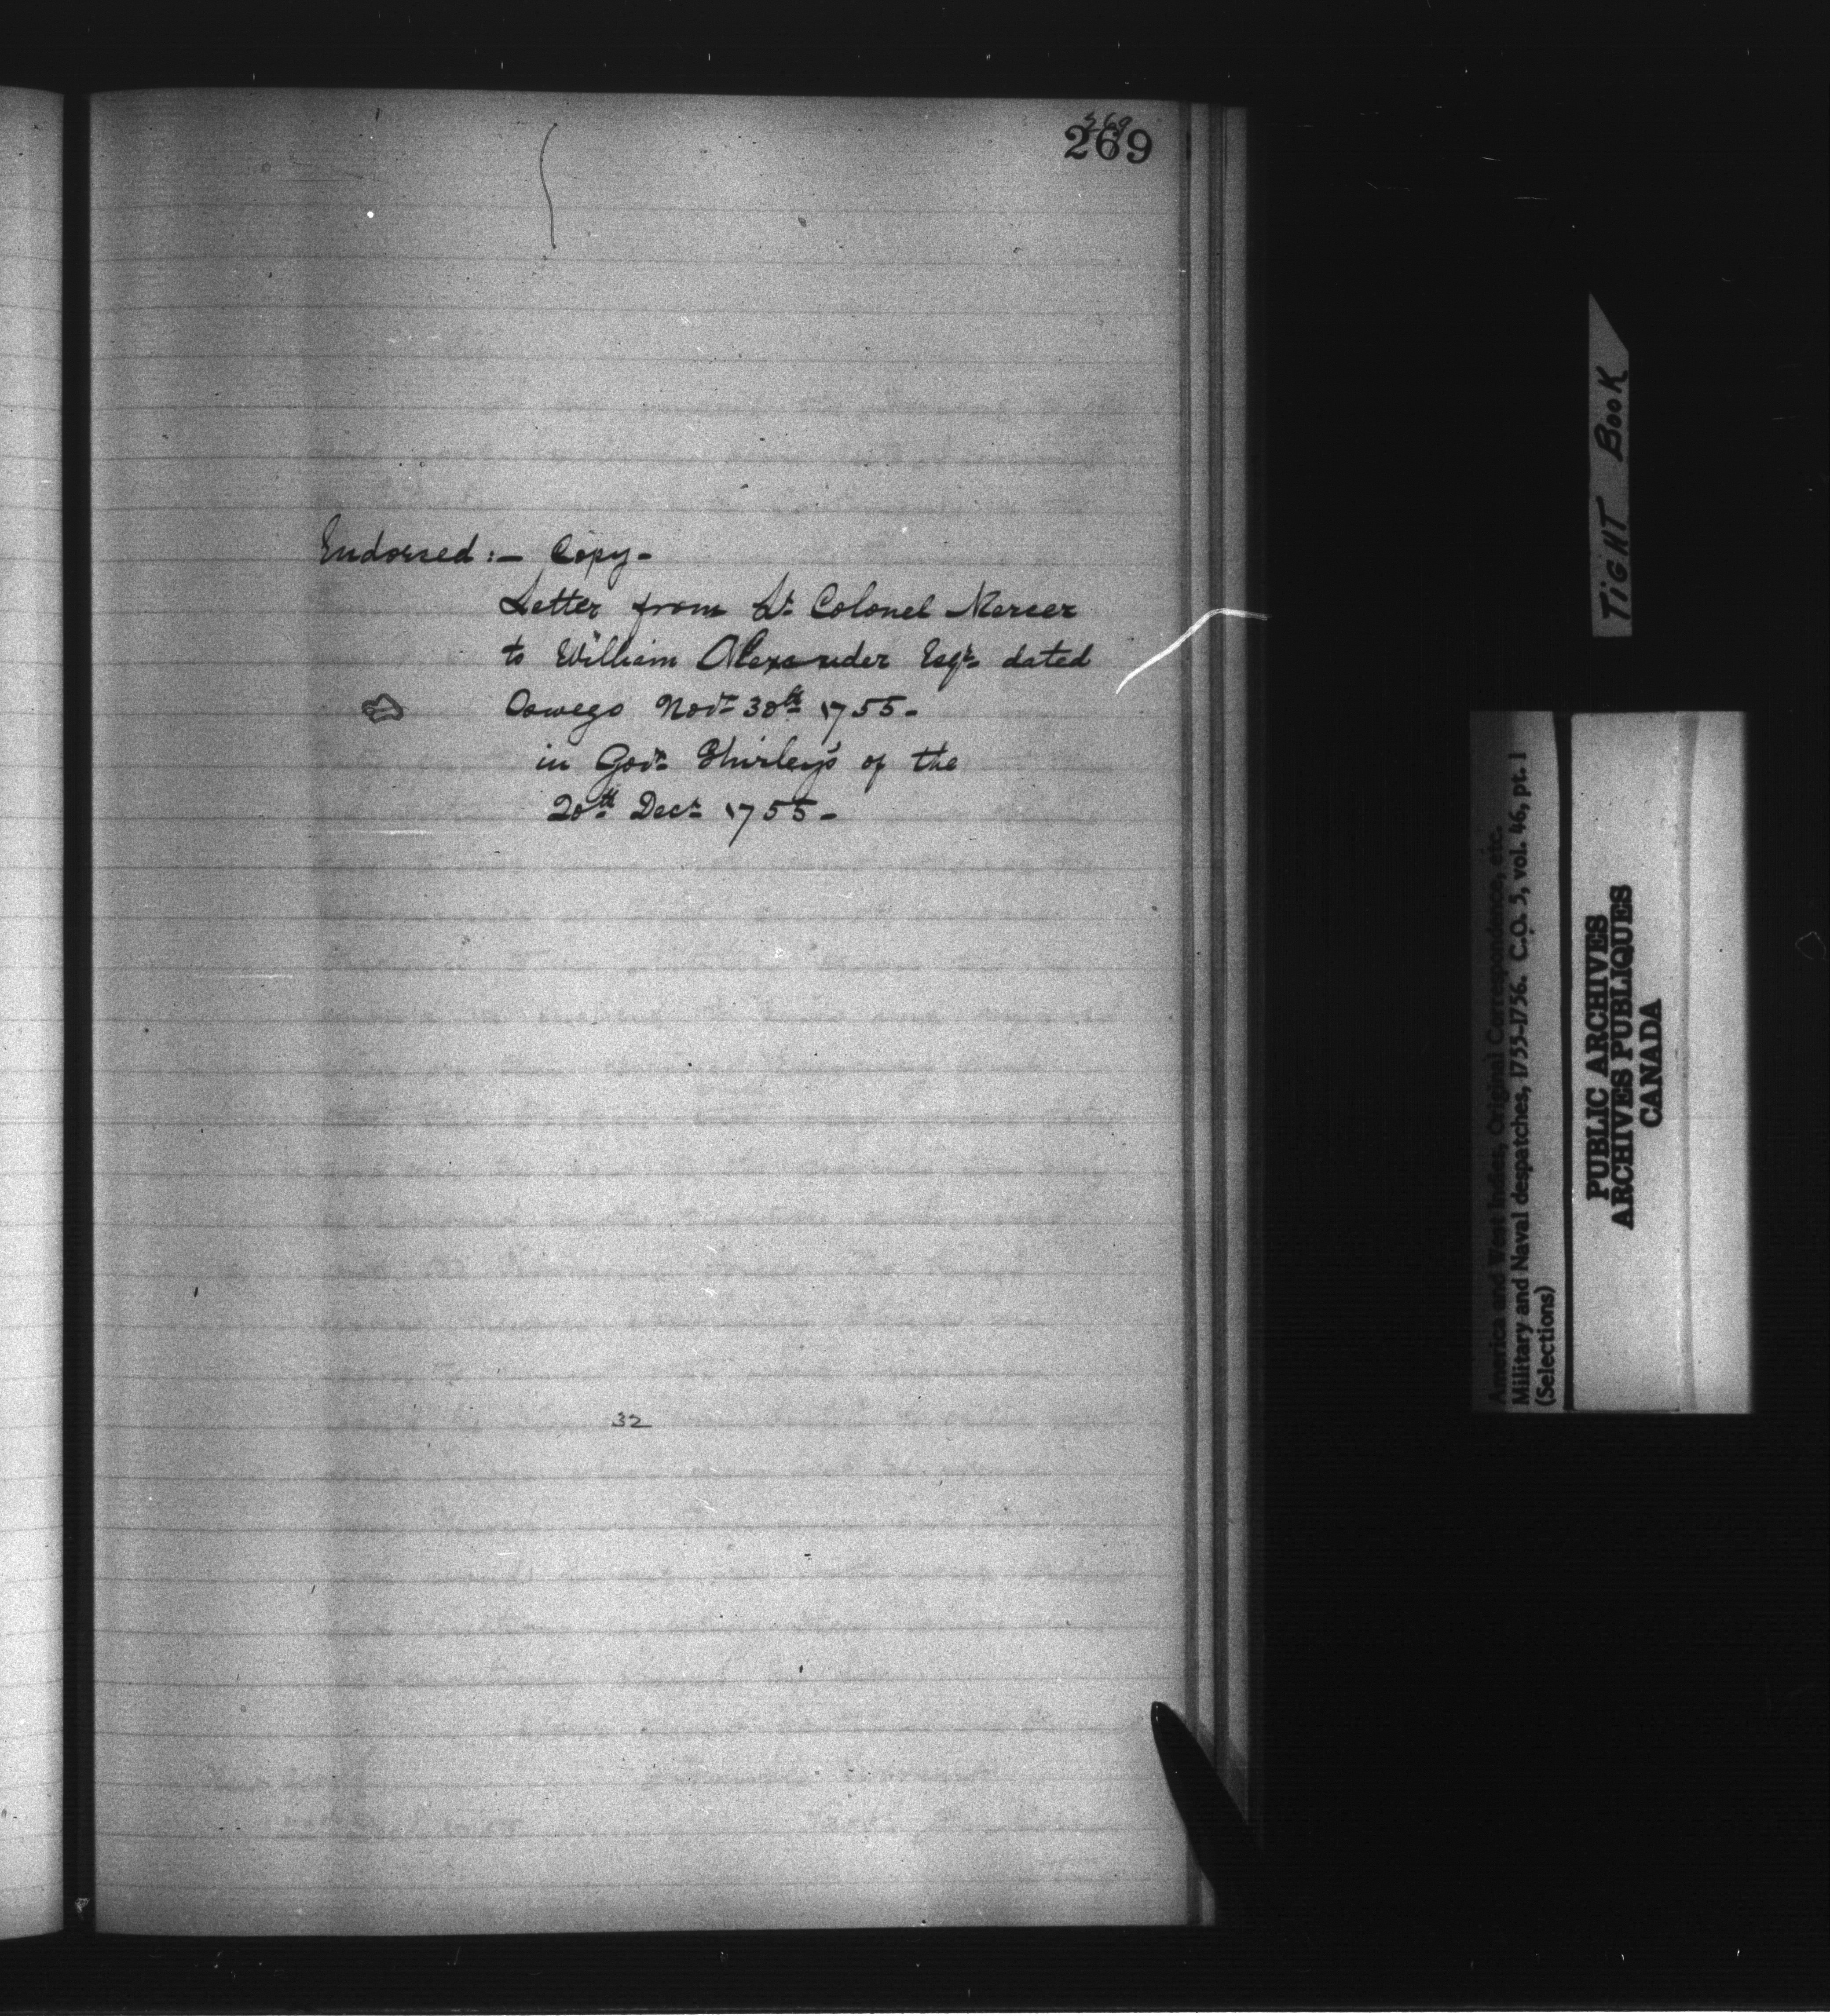 269
269
Endorsed :- Copy-
Letter from Lt. Colonel Mercer
to William Alexander Esqr. dated
Oswego Novr. 30th 1755-
in Govr. Shirley's of the
20th Decr. 1755-
32
TIGHT BOOK
America and West Indies, Original Correspondence, etc.
Military and Naval despatches, 1755-1756. C.O. 5, vol. 46, pt. 1
(Selections)
PUBLIC ARCHIVES
ARCHIVES PUBLIQUES
CANADA